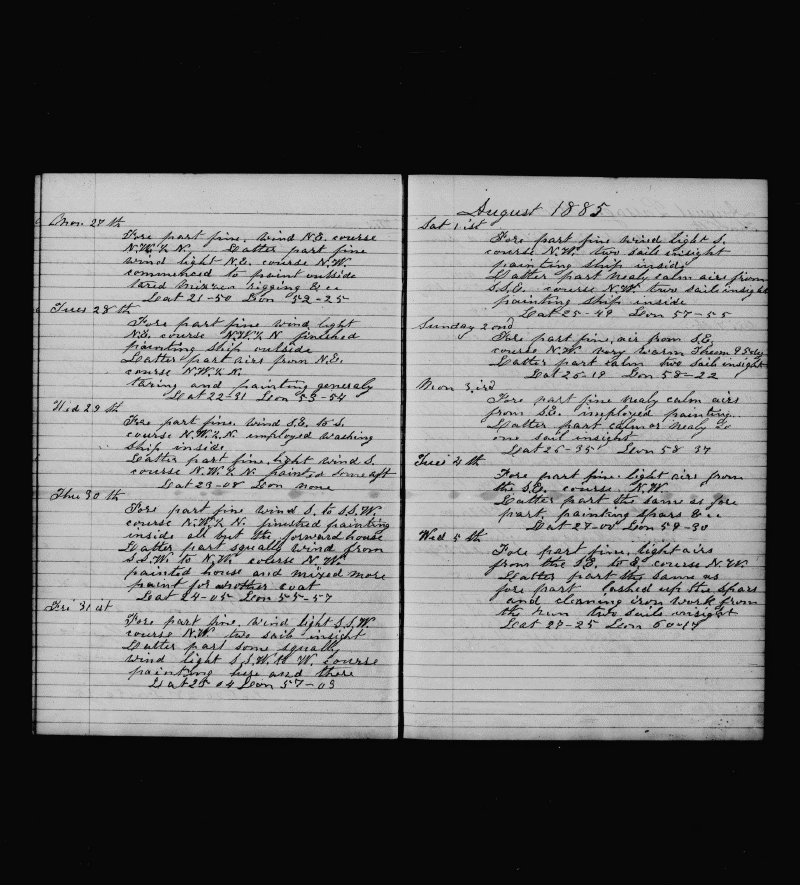 Mon 27 th
Fore part fine, wind N.E. course
N.W.½ N. Latter part fine
wind light N.E. course N.W.
commenced to paint outside
tared mizzen rigging &cc
Lat 21-50 Lon 52-25
Tues 28 th
Fore part fine wind light
N.E. course N.W.½ N finished
painting ship outside
Latter part airs from N.E.
course N.W.½ N.
taring and painting generaly
Lat 22-31 Lon 53-54
Wed 29 th
Fore part fine, wind S.E. to S.
course N.W.½ N. employed washing
ship inside
Latter part fine, light wind S.
course N.W.½ N. painted some aft
Lat 23-08 Lon none
Thu 30 th
Fore part fine wind S. to S.S.W.
course N.W.½ N. finished painting
inside all but the forward house
Latter part squally wind from
S.S.W. to N.W. course N.W.
painted house and mixed more
paint for another coat
Lat 24-05 Lon 55-57
Fri 31 st
Fore part fine, wind light S.S.W
course N.W. two sails insight
Latter part some squally
wind light S.S.W. to W. course
painting here and there
Lat 25 04 Lon 57-03
August 1885
Sat 1 st
Fore part fine wind light S.
course N.W. two sails insight
painting ship inside
Latter part nealy calm airs from
S.S.E. course N.W. two sails insight
painting ship inside
Lat 25-49 Lon 57-55
Sunday 2 ond
Fore part fine, air from S.E.
course N.W. very warm
Latter part calm two sail insight
Lat 25-19 Lon 58-22
Mon 3 ird
Fore part fine nealy calm airs
from S.E. imployed painting
Latter part calm or nealy so
one sail insight
Lat 26-35 Lon 58 37
Tues 4 th
Fore part fine light airs from
the S.E. course N.W.
Latter part the same as fore
part, painting spars &cc
Lat 27-00 Lon 59-30
Wed 5 th
Fore part fine, light airs
from the S.E. to E. course N.W.
Latter part the same as
fore part lashed up the spars
and cleaning iron work from
the run two sails insight
Lat 27-25 Lon 60-17